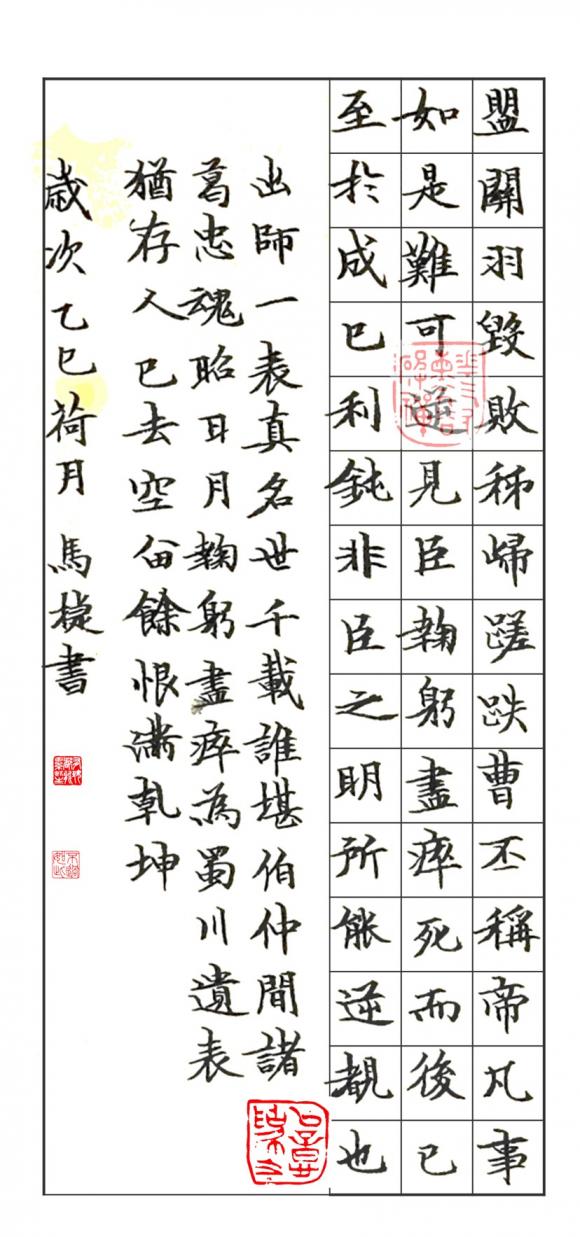 盟關羽毀敗秭歸蹉跌曹丕稱帝凡事
如是難可逆見臣鞠躬盡瘁死而後已
至於成已利鈍非臣之明所能逆覩也
出師一表真名世千載誰堪伯仲間諸
葛忠魂昭日月鞠躬盡瘁為蜀川遺表
猶存人已去空留餘恨滿乾坤
歲次乙巳荷月 馬捷書